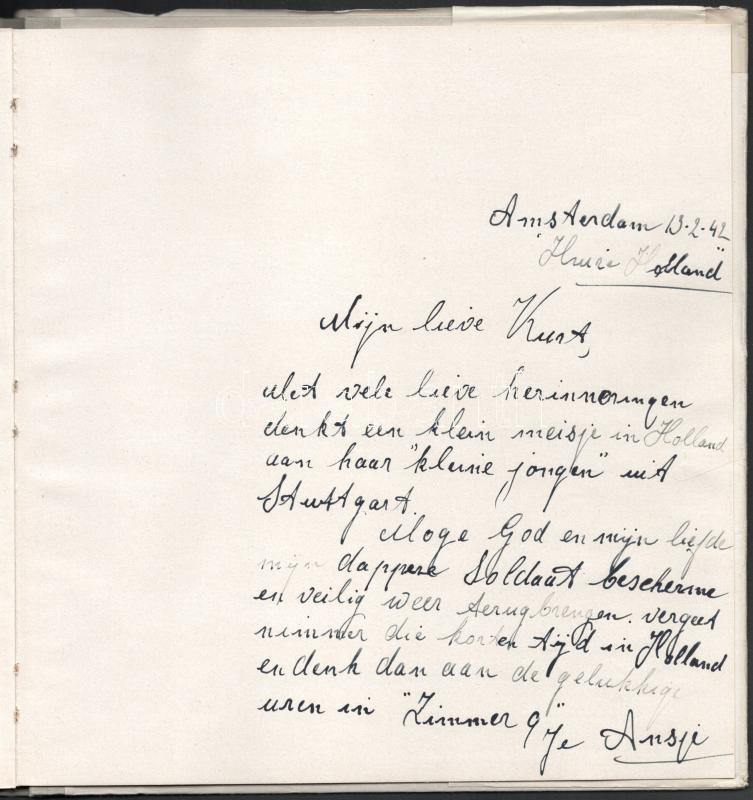 Amsterdam 13-2-42
"Huize Holland"
Mijn lieve Kurt,
Met vele lieve herinneringen
denkt een klein meisje in Holland
aan haar "kleine jongen" uit
Stuttgart.
Moge God en mijn liefde
mijn dappere Soldaat bescherme
en veilig weer terugbrengen. vergeet
nimmer die korten tijd in Holland
en denk dan aan de gelukkige
uren in "Zimmer 9"
Je Ansje